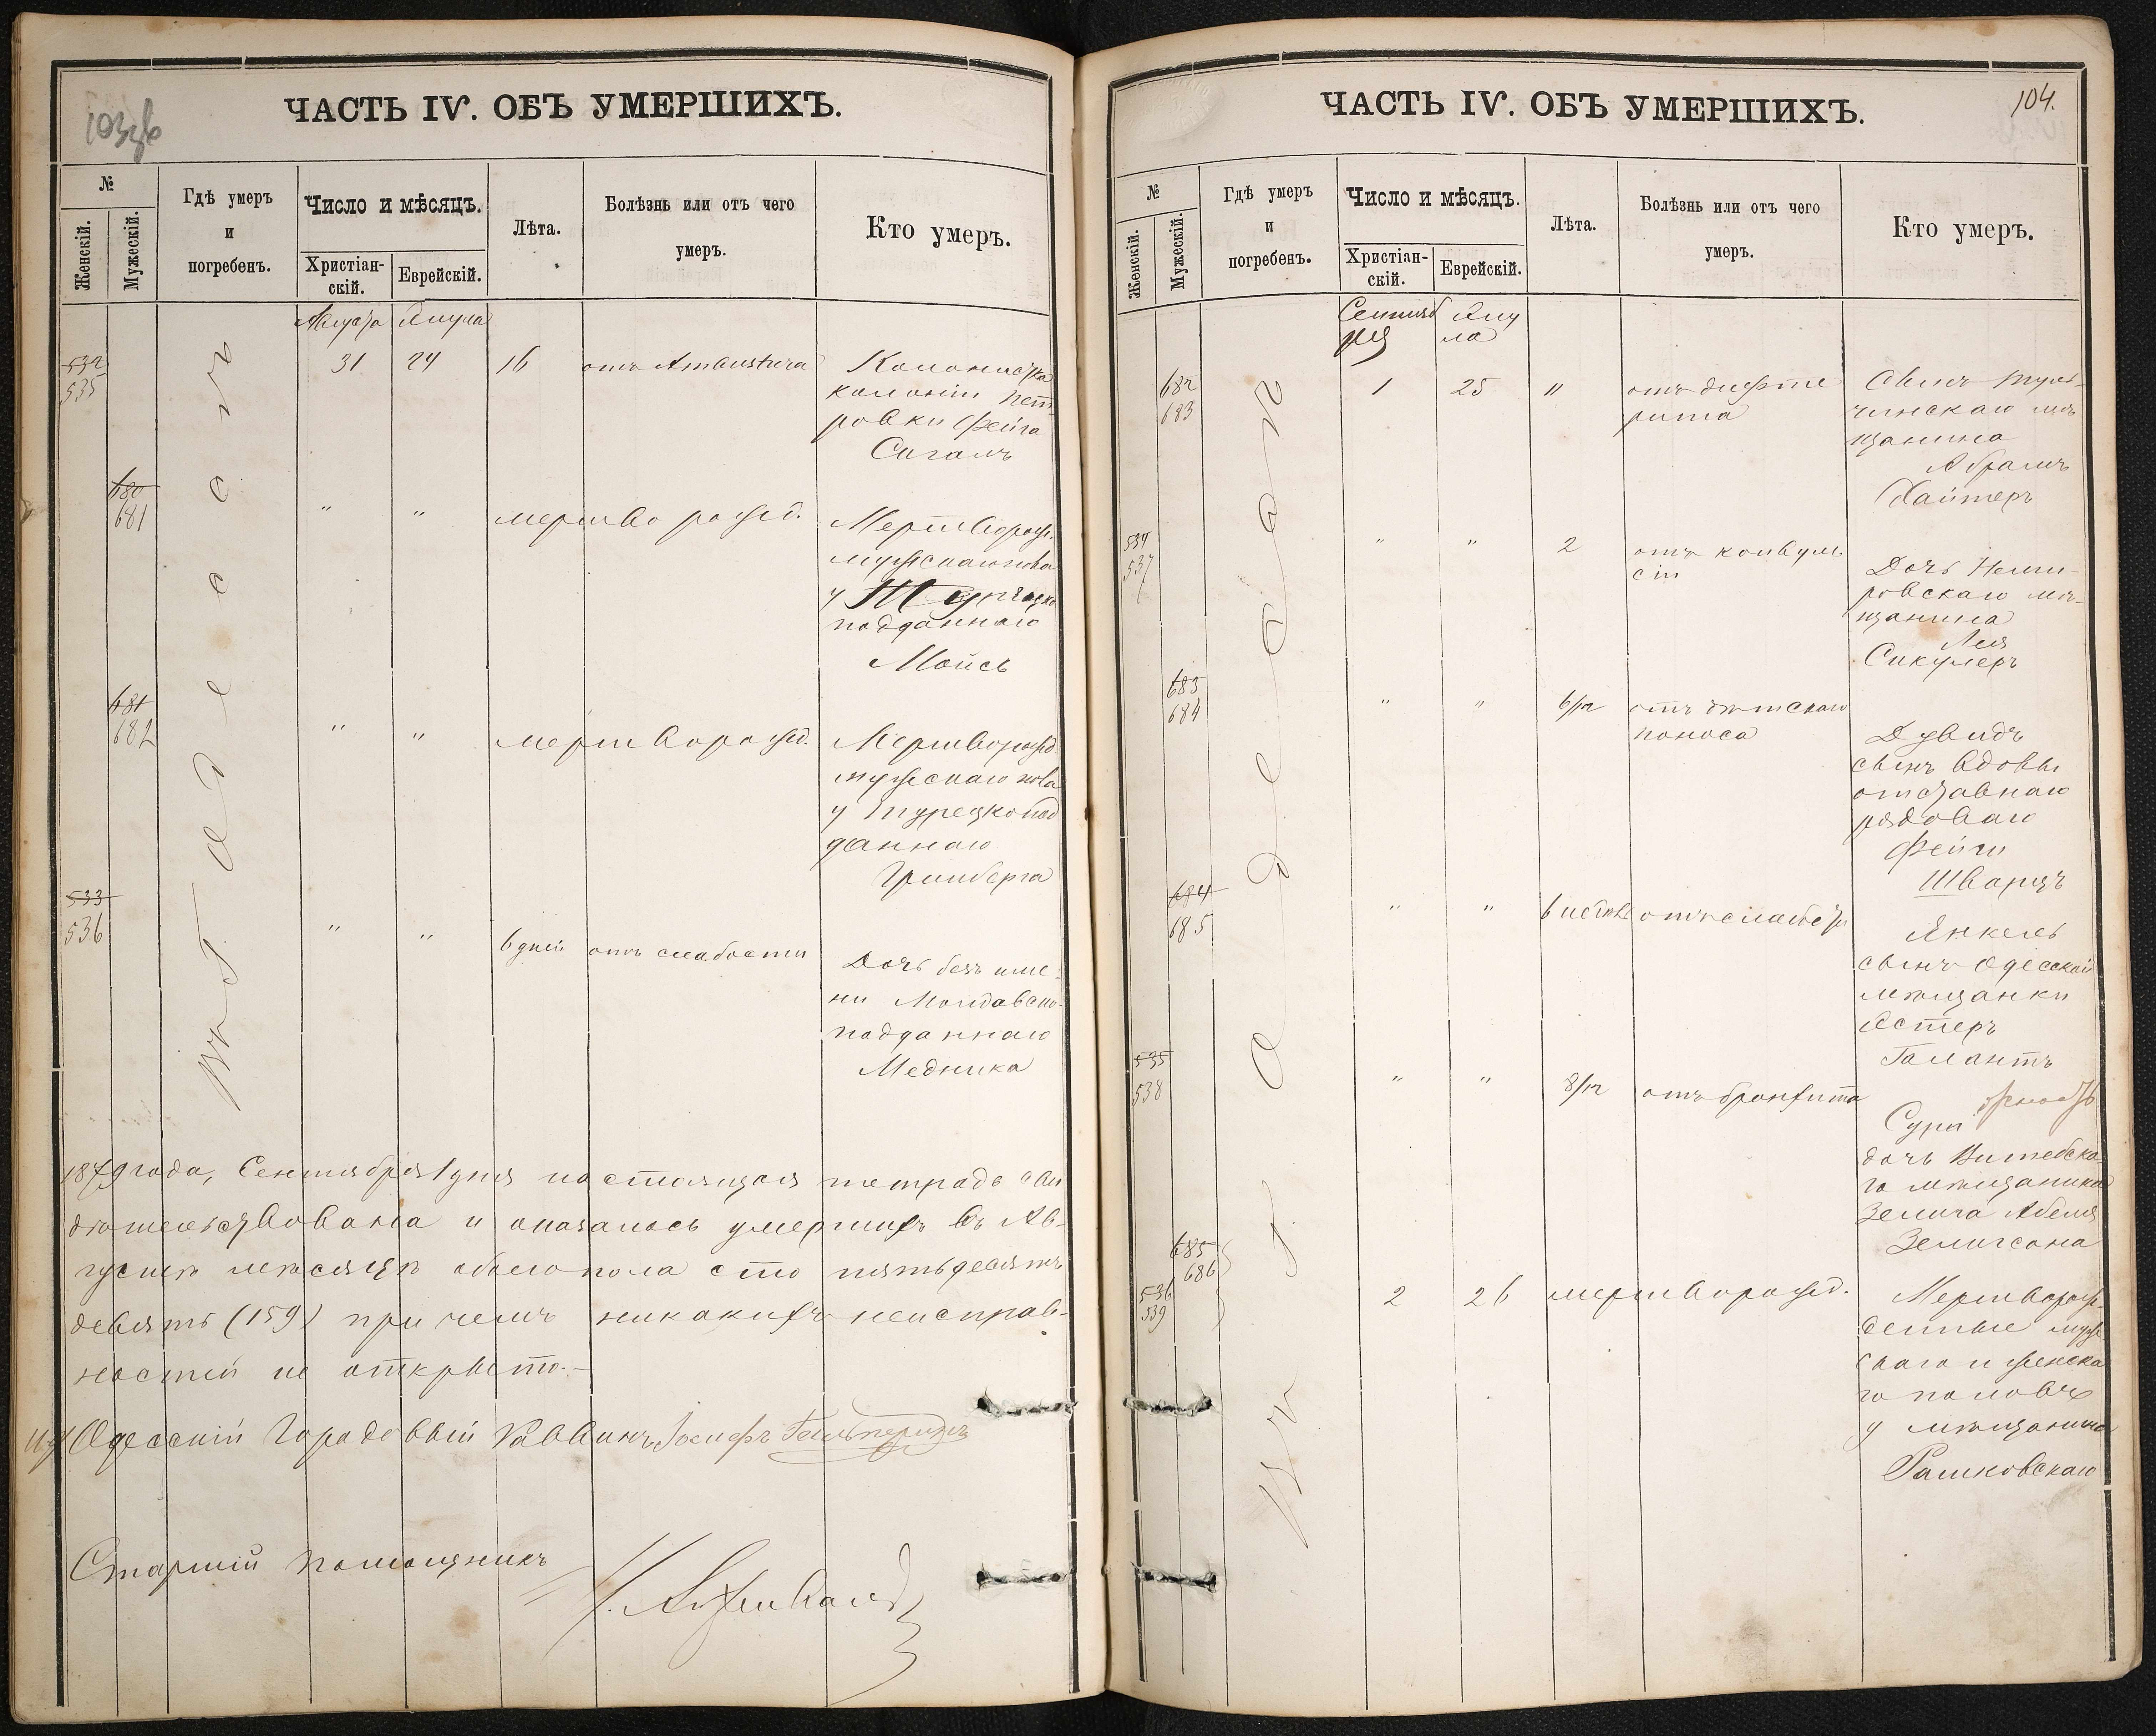 ЧАСТЬ IV. ОБЪ УМЕРШИХЪ.
№
Женскій.
Мужескій.
Гдѣ умеръ
и
погребенъ.
Число и мѣсяцъ.
Христіан-
скій.
Еврейскій.
Лѣта.
Болѣзнь или отъ чего
умеръ.
Кто умеръ.
Въ Одессѣ
Августа Элула
532
535
31 24 16 отъ Ambustura Колонистка
колоніи Пет-
ровки Фейга
Сигалъ
680
681
" " мертворожд. Мертворожд.
мужскаго пола
у Турецко
подданнаго
Мойсъ
681
682
" " мертворожд. Мертворожд.
мужескаго пола
у Турецкопод
даннаго
Гринберга
533
536
" " 6 дней отъ слабости Дочь безъ име-
ни Молдавско-
подданнаго
Медника
1879 года, Сентября 1 дня настоящая тетрадь сви
дѣтельствована и оказалось умершихъ въ Ав-
густѣ мѣсяцѣ обоего пола сто пятьдесятъ
девять (159) при чемъ никакихъ неисправ-
ностей не открыто.-
Одесскій Городовый Раввинъ Іосифъ Гальперинъ
Старшій помощникъ
ЧАСТЬ IV. ОБЪ УМЕРШИХЪ.
104.
№
Женскій.
Мужескій.
Гдѣ умеръ
и
погребенъ.
Число и мѣсяцъ.
Христіан-
скій.
Еврейскій.
Лѣта.
Болѣзнь или отъ чего
умеръ.
Кто умеръ.
Въ Одессѣ
Сентяб Элу
ря ла
682
683
1 25 11 отъ дифте
рита
Сынъ Туль-
чинскаго мѣ
щанина
Абрамъ
Хаймеръ
534
537
" " 2 отъ конвуль
сіи
Дочь Неми-
ровскаго мѣ-
щанина
Лея
Сикулеръ
683
684
" " 6/12 отъ дѣтскаго
поноса
Дувидъ
сынъ вдовы
отставнаго
рядоваго
Фейги
Шварцъ
684
685
" " отъ слабости
Янкель
сынъ Одесской
мѣщанки
Естеръ
Галантъ
535
538
" " 8/12 отъ бронхита
Сура
дочь Витебска-
го мѣщанина
Зелига Абеля
Зелигсона
685
686
536
539
2 26 мертворожд. Мертворож-
денные муже
скаго и женска
го половъ
у мѣщанина
Рашковскаго